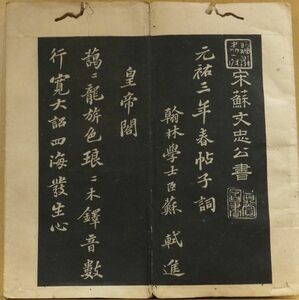 宋蘇文忠公書
元祐三年春帖子詞
翰林學士臣蘇軾進
皇帝閣
靄靄龍旂色琅琅木鐸音數
行寬大詔四海發生心